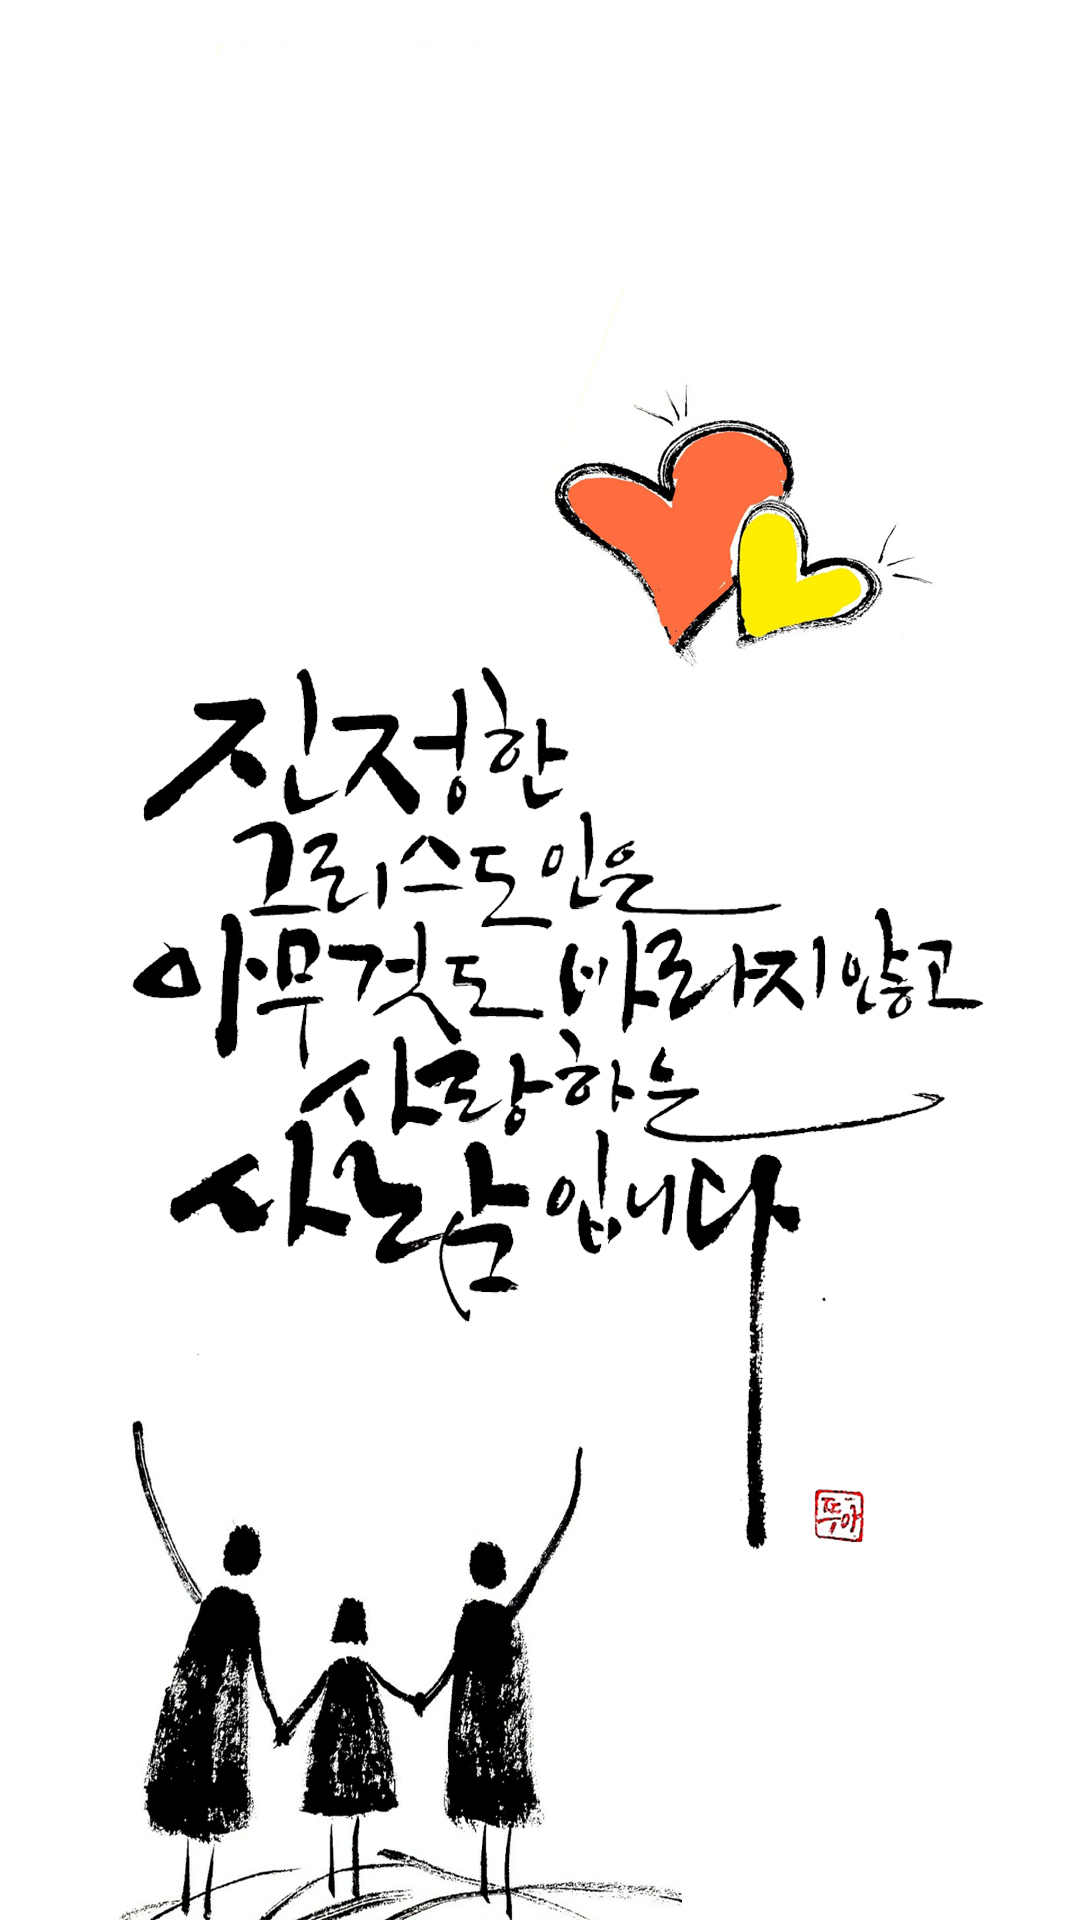 진정한
그리스도인은
아무것도 바라지 않고
사랑하는
사람입니다